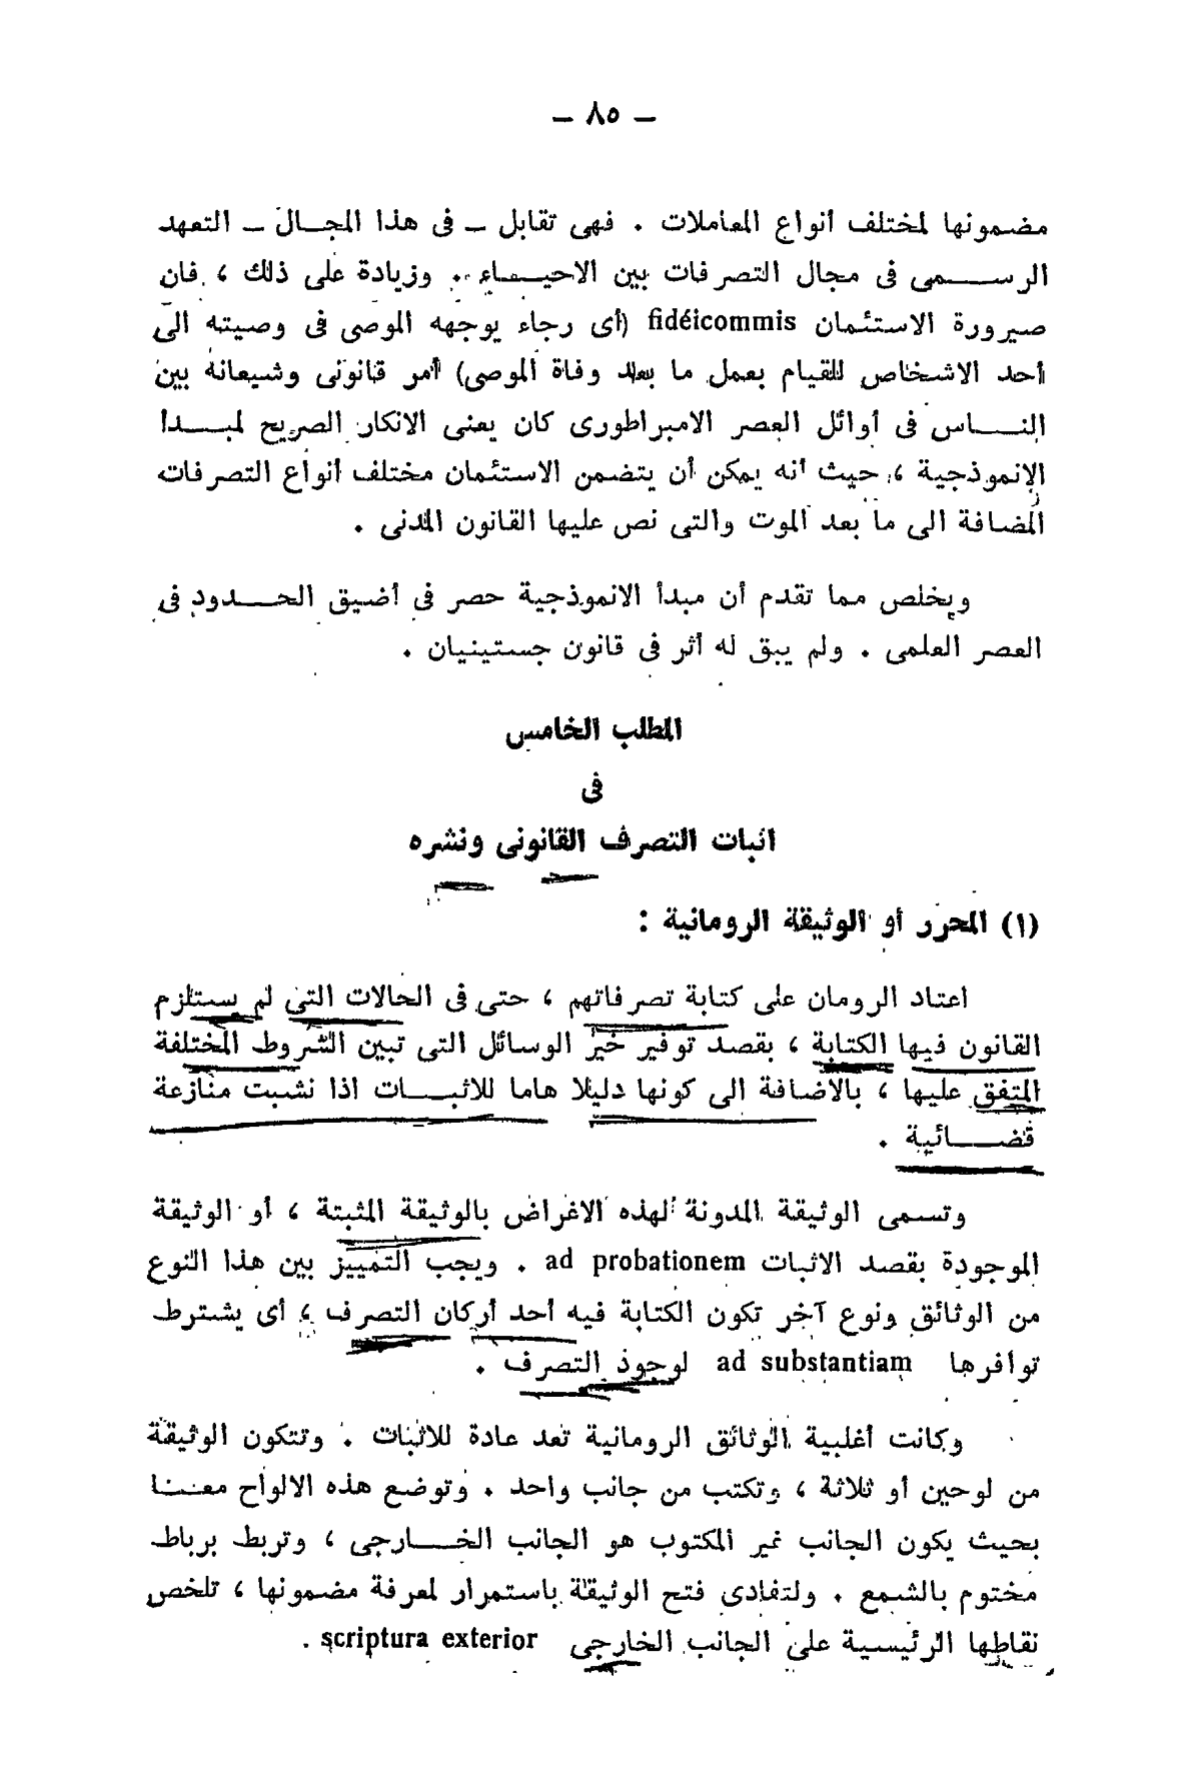 — ٨٥ —
مضمونها لمختلف أنواع المعاملات . فهى تقابل — فى هذا المجال — التعهد
الرسمى فى مجال التصرفات بين الاحياء . وزيادة على ذلك ، فان
صيرورة الاستئمان fidéicommis (أى رجاء يوجهه الموصى فى وصيته الى
أحد الاشخاص للقيام بعمل ما بعد وفاة الموصى) أمر قانونى وشيعانه بين
الناس فى أوائل العصر الامبراطورى كان يعنى الانكار الصريح لمبدا
الإنموذجية ، حيث أنه يمكن أن يتضمن الاستئمان مختلف أنواع التصرفات
المضافة الى ما بعد الموت والتى نص عليها القانون المدنى .
ويخلص مما تقدم أن مبدأ الانموذجية حصر فى أضيق الحدود فى
العصر العلمى . ولم يبق له أثر فى قانون جستينيان .
المطلب الخامس
فى
اثبات التصرف القانونى ونشره
(١) المحرر أو الوثيقة الرومانية :
اعتاد الرومان على كتابة تصرفاتهم ، حتى فى الحالات التى لم يستلزم
القانون فيها الكتابة ، بقصد توفير خير الوسائل التى تبين الشروط المختلفة
المتفق عليها ، بالاضافة الى كونها دليلا هاما للاثبات اذا نشبت منازعة
قضائية .
وتسمى الوثيقة المدونة لهذه الاغراض بالوثيقة المثبتة ، أو الوثيقة
الموجودة بقصد الاثبات ad probationem . ويجب التمييز بين هذا النوع
من الوثائق ونوع آخر تكون الكتابة فيه أحد أركان التصرف ، أى يشترط
توافرها ad substantiam لوجود التصرف .
وكانت أغلبية الوثائق الرومانية تعد عادة للاثبات . وتتكون الوثيقة
من لوحين أو ثلاثة ، وتكتب من جانب واحد . وتوضع هذه الالواح معا
بحيث يكون الجانب غير المكتوب هو الجانب الخارجى ، وتربط برباط
مختوم بالشمع . ولتفادى فتح الوثيقة باستمرار لمعرفة مضمونها ، تلخص
نقاطها الرئيسية على الجانب الخارجى scriptura exterior .